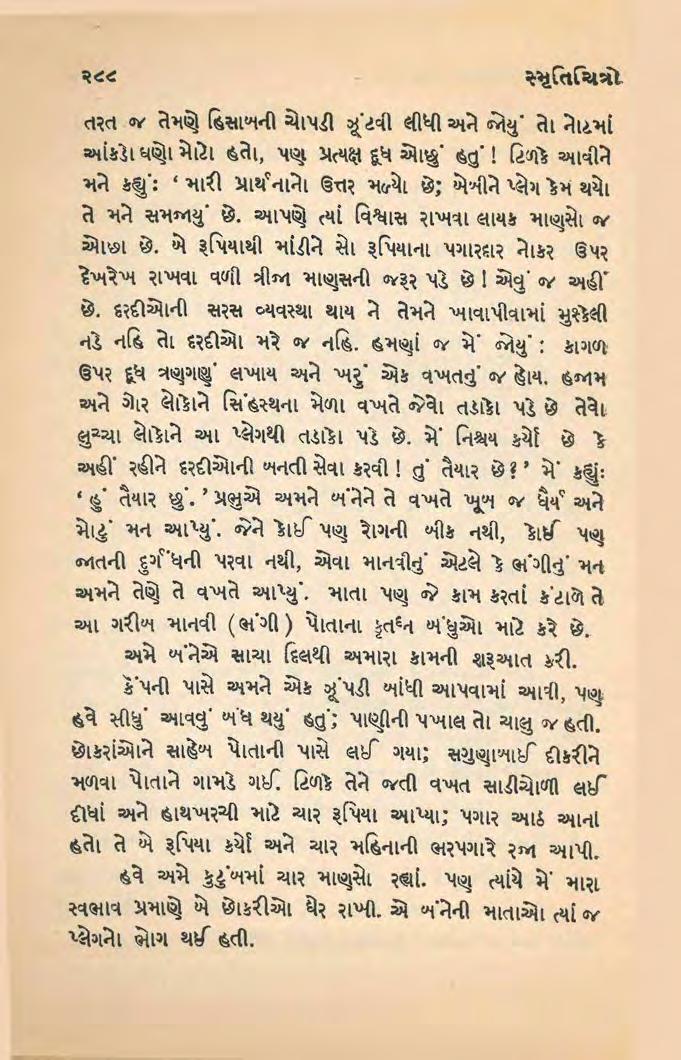 ૨૮૮ સ્મૃતિચિત્રો
તરત જ તેમણે હિસાબની ચોપડી ઝૂંટવી લીધી અને જોયું તો નોટમાં
આંકડો ઘણો મોટો હતો, પણ પ્રત્યક્ષ દૂધ ઓછું હતું! ટિળકે આવીને
મને કહ્યું: ‘મારી પ્રાર્થનાનો ઉત્તર મળ્યો છે; એબીને પ્લેગ કેમ થયો
તે મને સમજાયું છે. આપણે ત્યાં વિશ્વાસ રાખવા લાયક માણસો જ
ઓછા છે. બે રૂપિયાથી માંડીને સો રૂપિયાના પગારદાર નોકર ઉપર
દેખરેખ રાખવા વળી ત્રીજા માણસની જરૂર પડે છે! એવું જ અહીં
છે. દરદીઓની સરસ વ્યવસ્થા થાય ને તેમને ખાવાપીવામાં મુશ્કેલી
નડે નહિ તો દરદીઓ મરે જ નહિ. હમણાં જ મેં જોયું: કાગળ
ઉપર દૂધ ત્રણગણું લખાય અને ખરું એક વખતનું જ હોય. હજામ
અને ગોર લોકોને સિંહસ્થના મેળા વખતે જેવો તડાકો પડે છે તેવો
લુચ્ચા લોકોને આ પ્લેગથી તડાકો પડે છે. મેં નિશ્ચય કર્યો છે કે
અહીં રહીને દરદીઓની બનતી સેવા કરવી! તું તૈયાર છે?’ મેં કહ્યું:
‘હું તૈયાર છું.’ પ્રભુએ અમને બંનેને તે વખતે ખૂબ જ ધૈર્ય અને
મોટું મન આપ્યું. જેને કોઈ પણ રોગની બીક નથી, કોઈ પણ
જાતની દુર્ગંધની પરવા નથી, એવા માનવીનું એટલે કે ભંગીનું મન
અમને તેણે તે વખતે આપ્યું. માતા પણ જે કામ કરતાં કંટાળે તે
આ ગરીબ માનવી (ભંગી) પોતાના કૃતઘ્ન બંધુઓ માટે કરે છે.
અમે બંનેએ સાચા દિલથી અમારા કામની શરૂઆત કરી.
કૅંપની પાસે અમને એક ઝૂંપડી બાંધી આપવામાં આવી, પણ
હવે સીધું આવવું બંધ થયું હતું; પાણીની પખાલ તો ચાલુ જ હતી.
છોકરાંઓને સાહેબ પોતાની પાસે લઈ ગયા; સગુણાબાઈ દીકરીને
મળવા પોતાને ગામડે ગઈ. ટિળકે તેને જતી વખત સાડીચોળી લઈ
દીધાં અને હાથખરચી માટે ચાર રૂપિયા આપ્યા; પગાર આઠ આના
હતો તે બે રૂપિયા કર્યો અને ચાર મહિનાની ભરપગારે રજા આપી.
હવે અમે કુટુંબમાં ચાર માણસો રહ્યાં. પણ ત્યાંયે મેં મારા
સ્વભાવ પ્રમાણે બે છોકરીઓ ઘેર રાખી. એ બંનેની માતાઓ ત્યાં જ
પ્લેગનો ભોગ થઈ હતી.